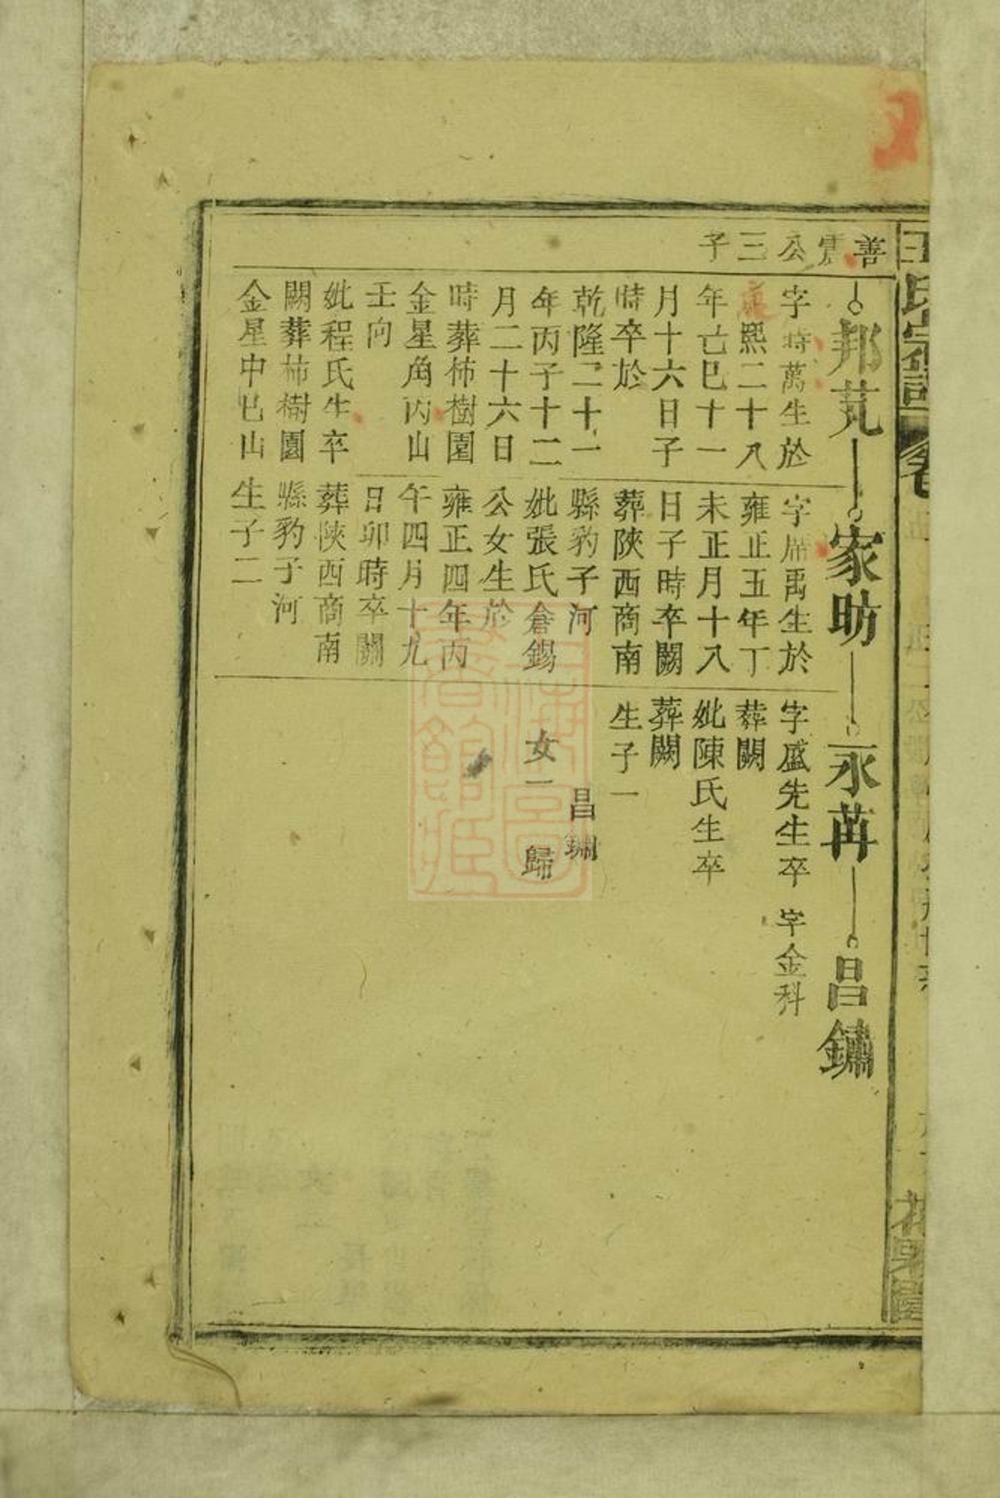 王氏宗譜
善震公三子
邦芃
字時萬生於
康熙二十八
年亡巳十一
月十六日子
時卒於
乾隆二十一
年丙子十二
月二十六日
時葬柿樹園
金星角丙山
壬向
妣程氏生卒
闕葬柿樹園
金星中巳山
家昉
字席禹生於
雍正五年丁
未正月十八
日子時卒闕
葬陝西商南
縣豹子河
妣張氏倉錫
公女生於
雍正四年丙
午四月十九
日卯時卒闕
葬陝西商南
縣豹子河
生子二
永苒
字盛先生卒
葬闕
妣陳氏生卒
葬闕
生子一
昌鏽
女一 歸
昌鏽
字金科